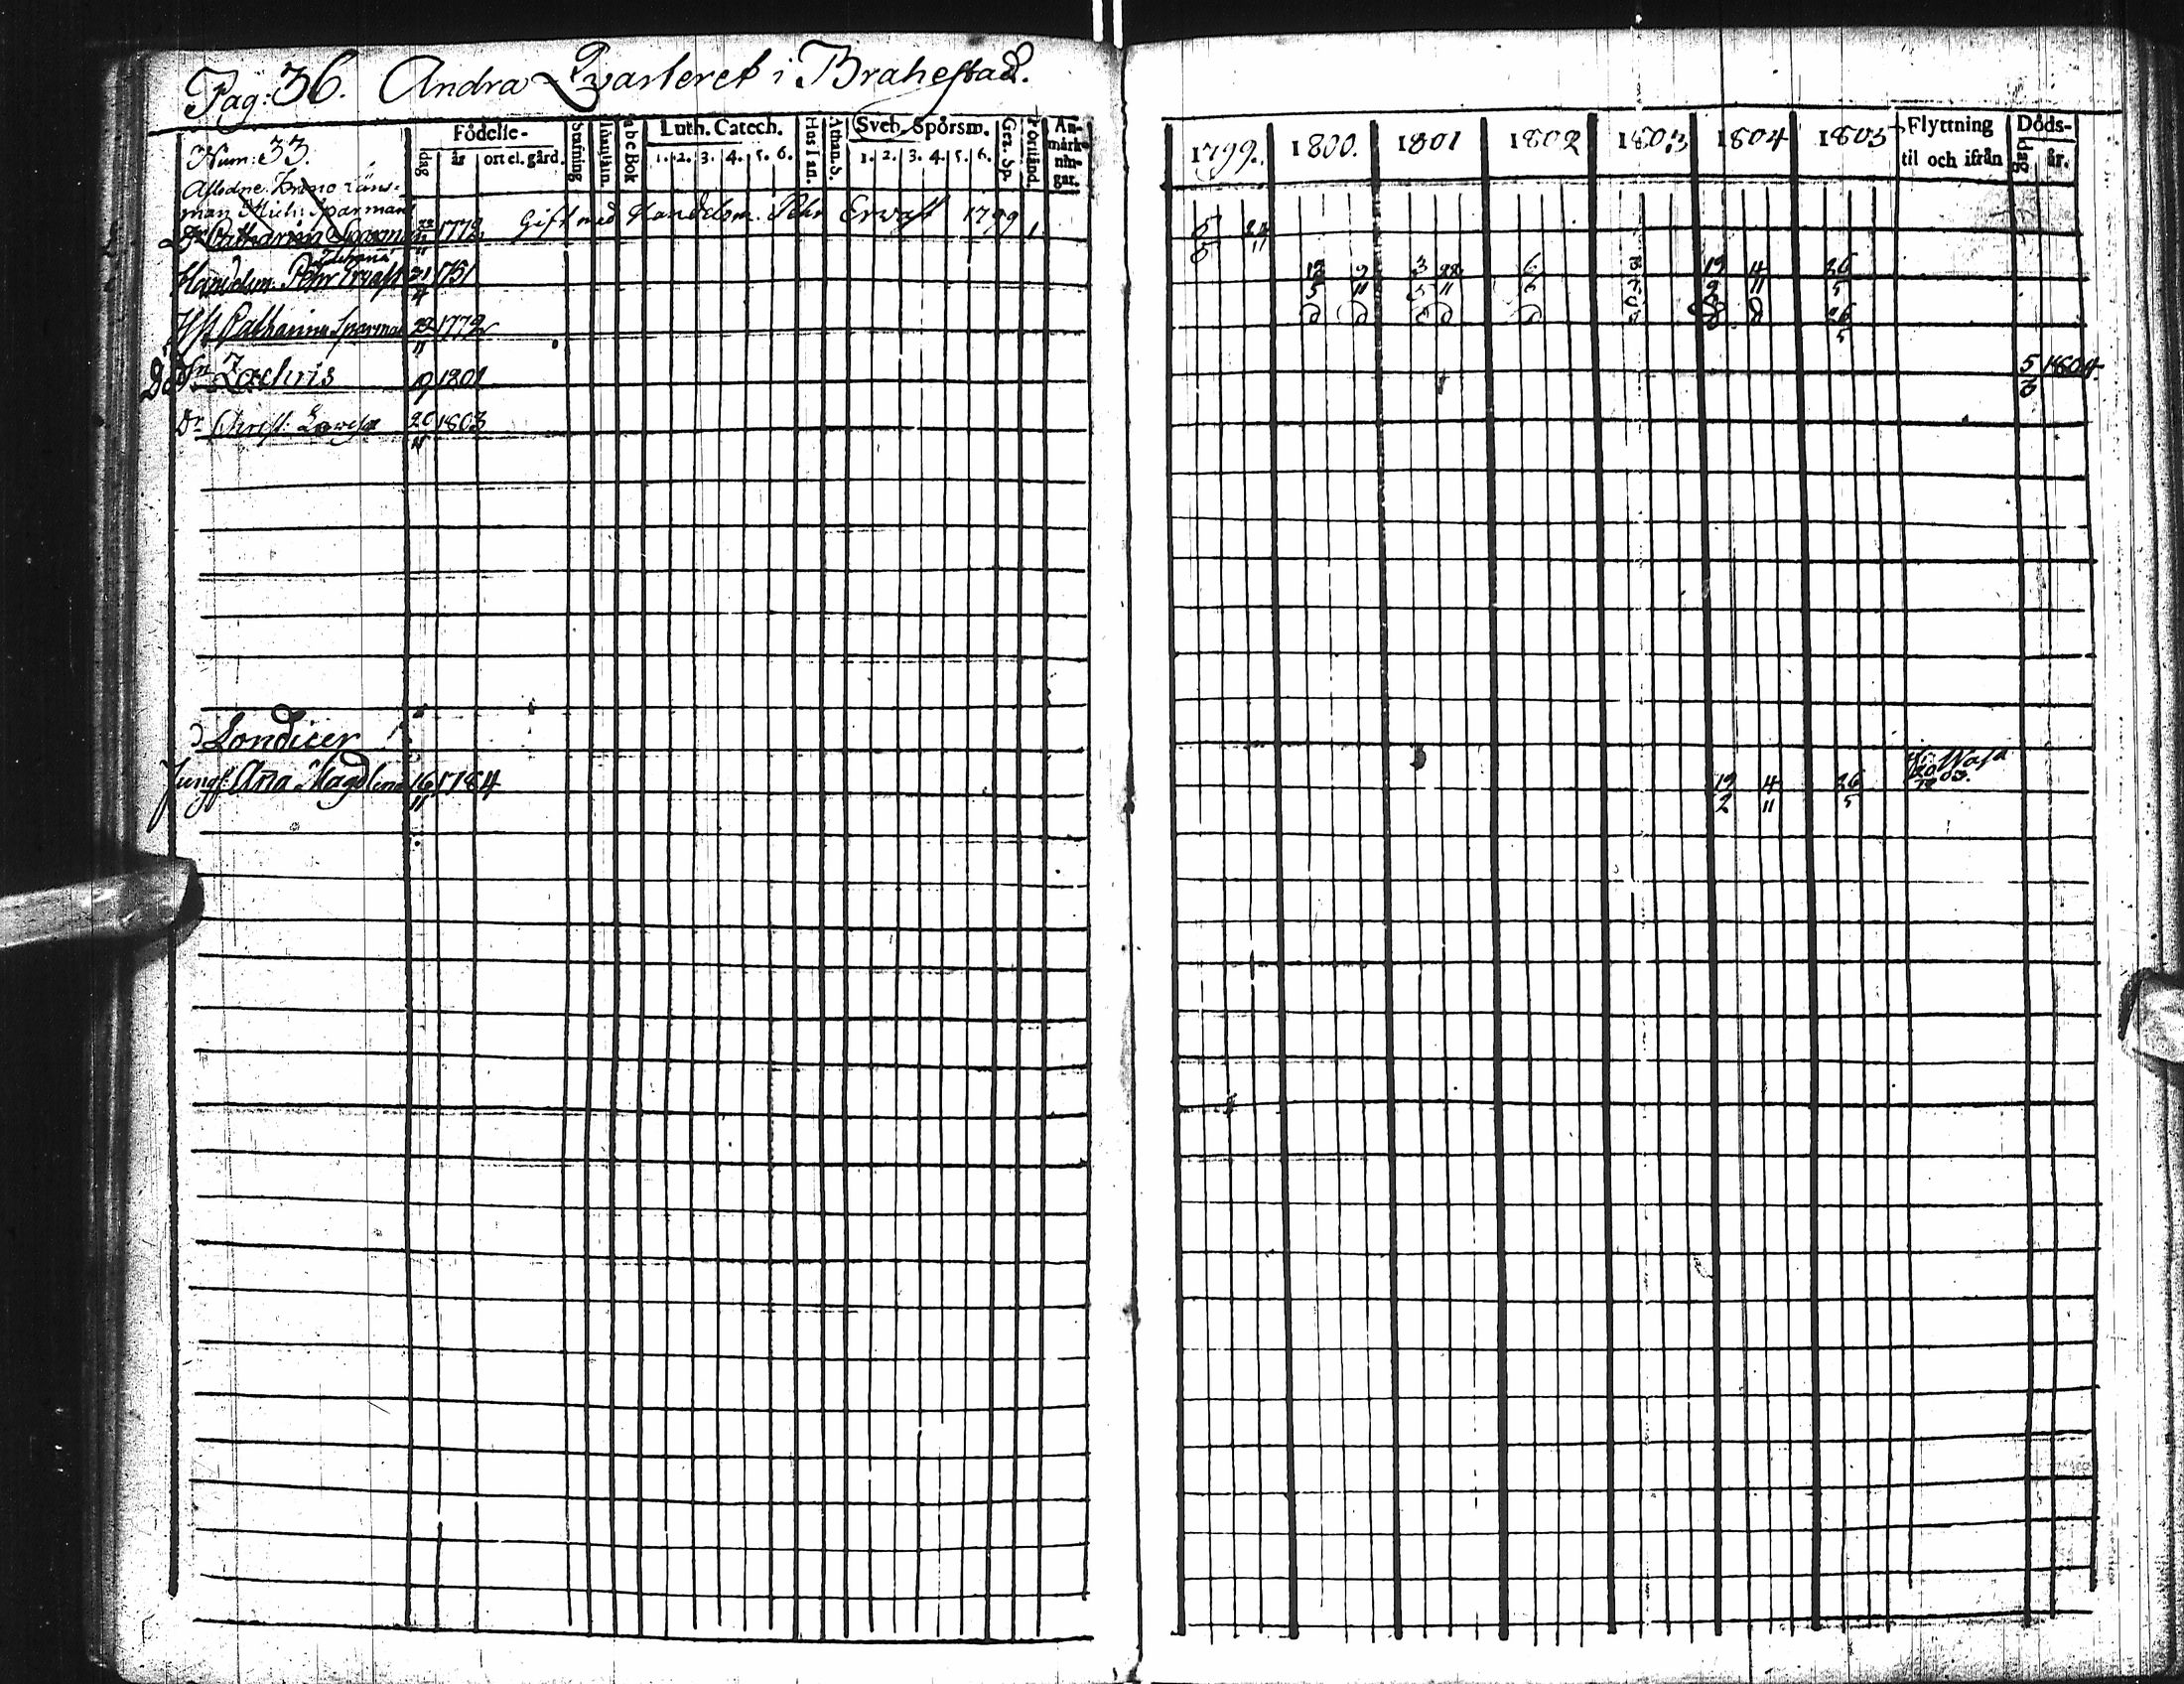 Pag: 36. Andra Qvarteret i Brahestad.
Födelse-
dag år ort el. gård.
Stafning
a b c Bok
Luth. Catech.
1. 2. 3. 4. 5. 6.
Athan. S.
Sveb. Spörsm.
1. 2. 3. 4. 5. 6.
Grz. Sp.
Förstånd.
An-
märk-
nin-
gar.
1799. 1800. 1801 1802 1803 1804 1805
Flyttning
til och ifrån
Döds-
dag år.
Num: 33.
Afledne Krono Läns-
man Mich: Sparman
Dr Catharina Sparman 22/11 1772 Gift med Handelsm. Pehr Ervast 1799 5/5 24/11
Handelsm. Pehr Ervast 21/4 1751 12/5 9/11 3/5 28/11 6 19/2 4/11 26/5
Hst Catharina Sparman 22/11 1772 26/5
Död Sn Zachris 19/7 1801 5/3 1804.
Dr Christ: Lovisa 20/11 1803
Londicer
Jungf: Anna Magdlena 16/11 1784 19/2 4/11 26/5 Wasa